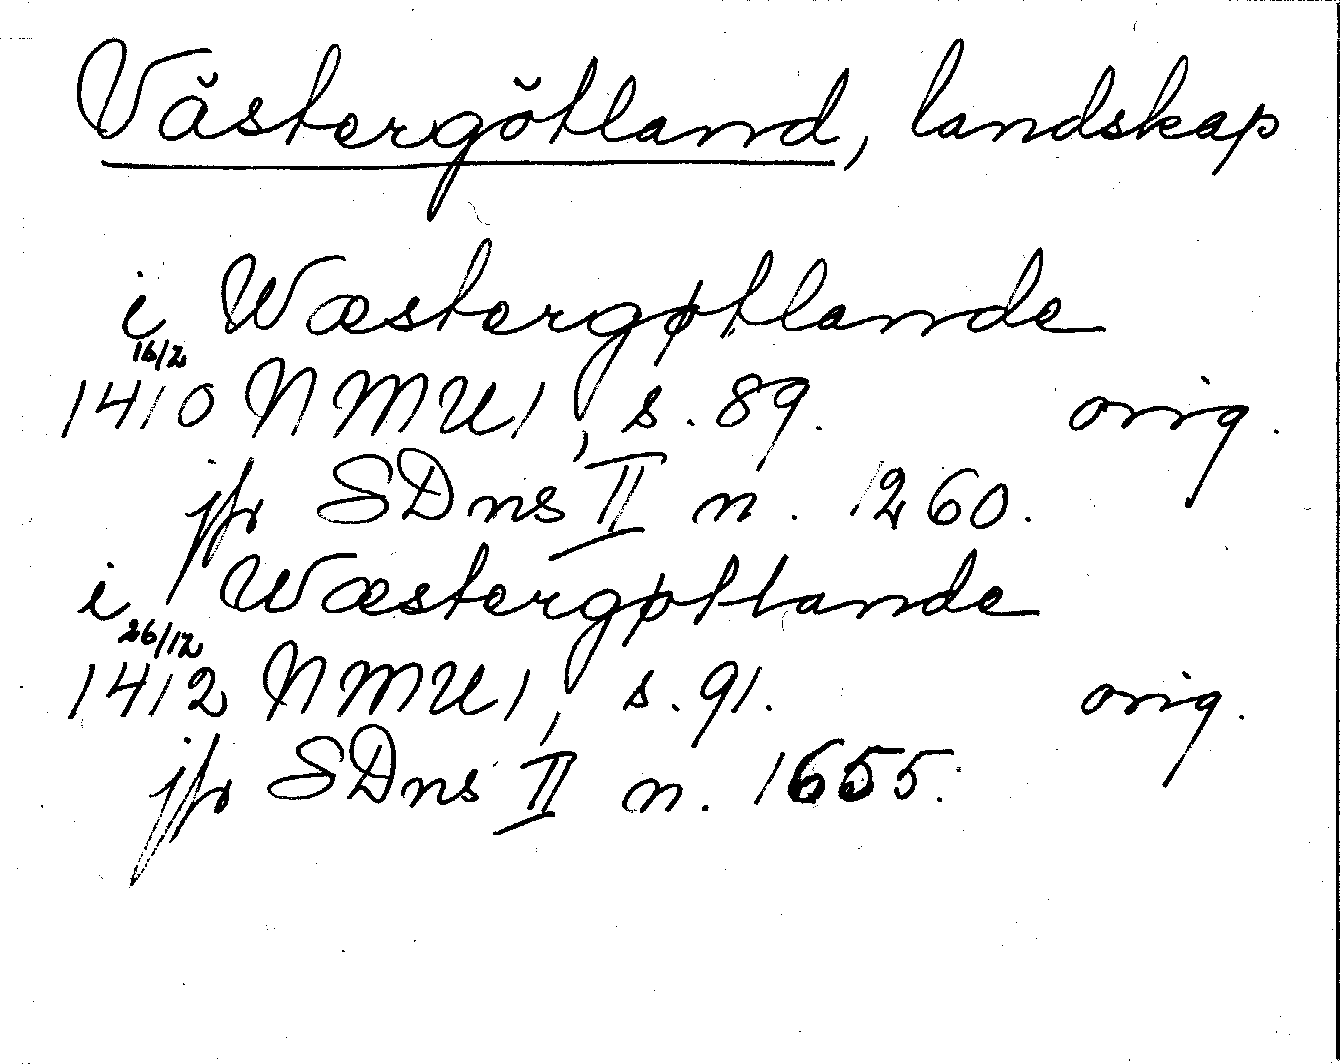 Västergötland, landskap
i Wæstergøtlande
16/2
1410 NMU 1, s. 89. orig.
jfr SDns II n. 1260.
i Wæstergøtlande
26/12
1412 NMU 1, s. 91. orig.
jfr SDns II n. 1655.